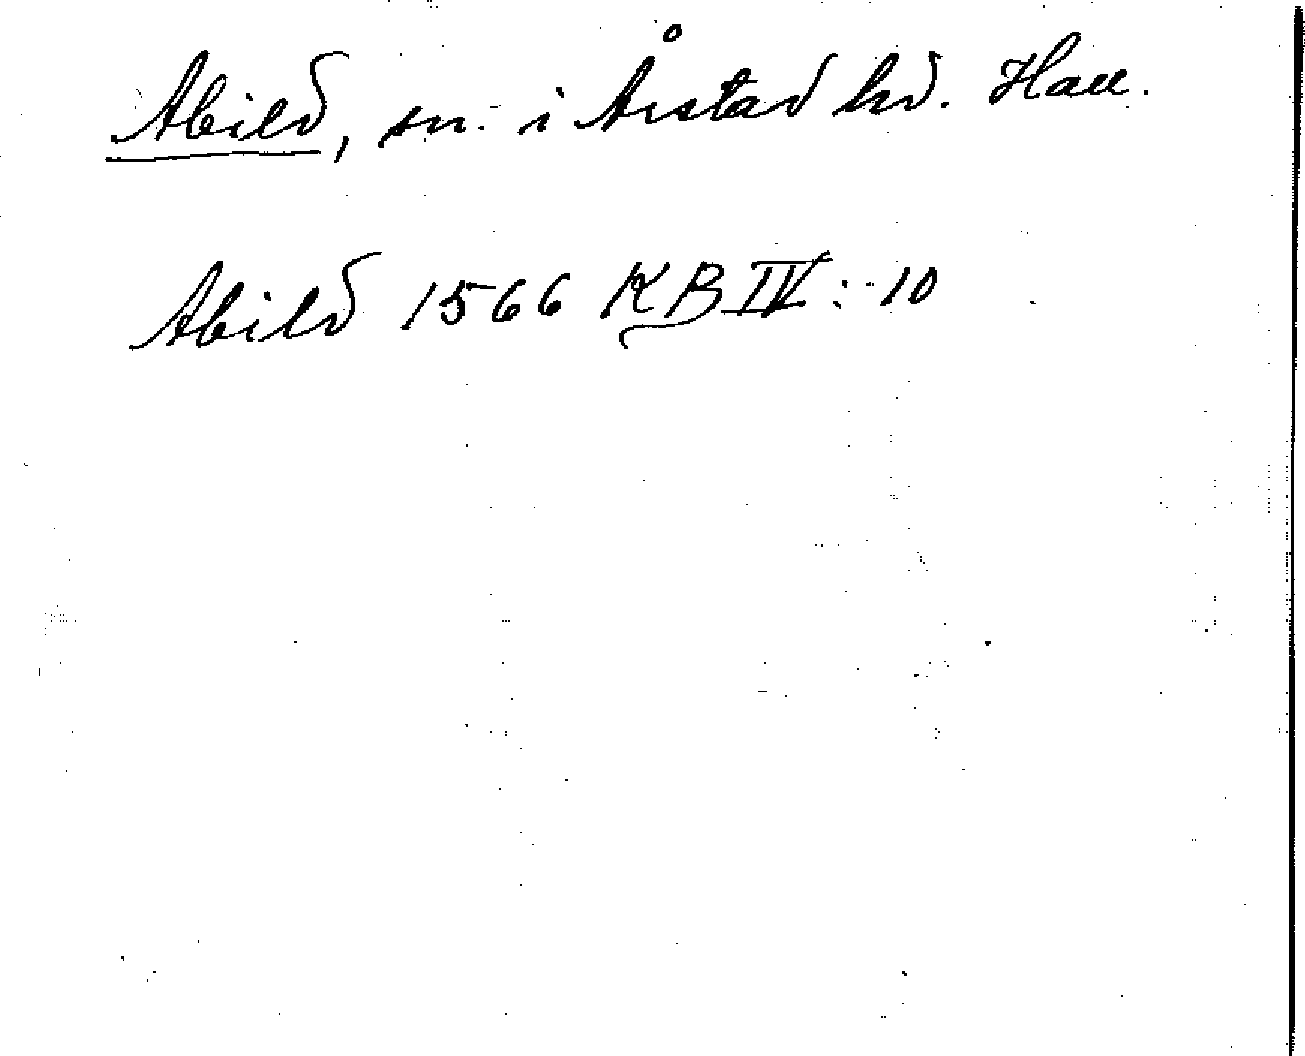 Abild, sn. i Årstad hd. Hall.
Abild 1566 KB IV: 10